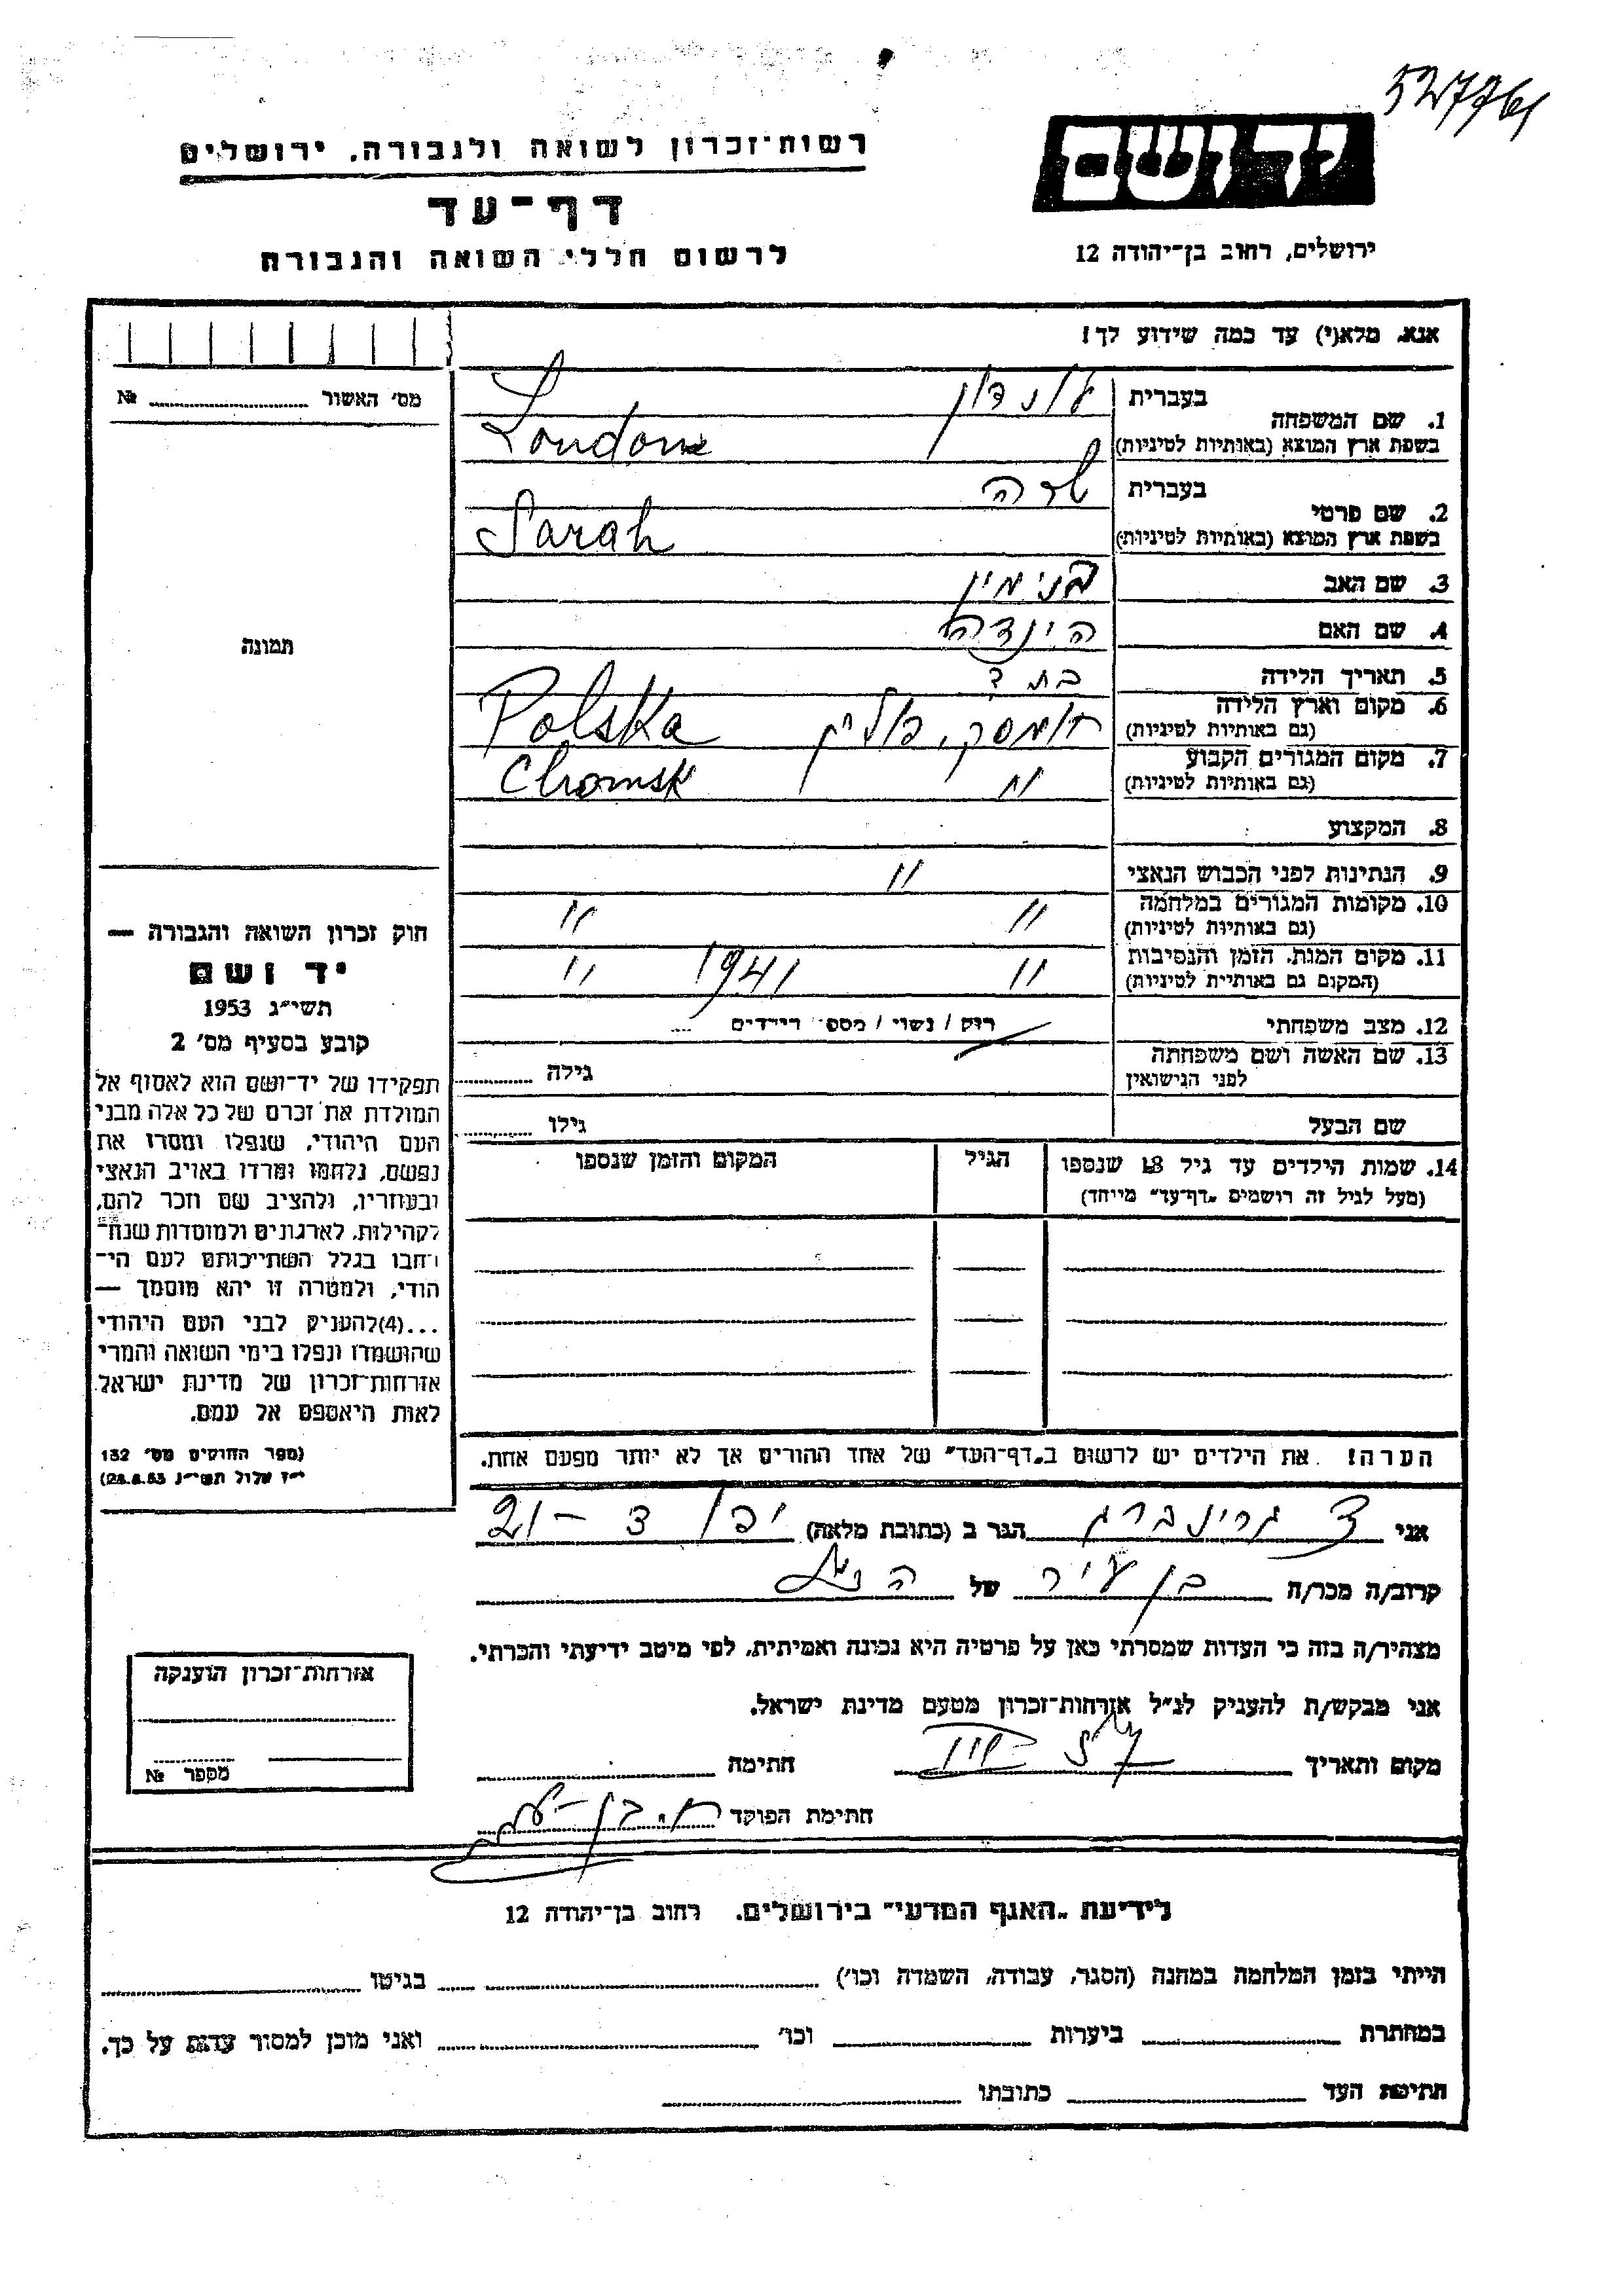 527761
יד ושם
רשות־זכרון לשואה ולגבורה, ירושלים
דף־עד
לרשום חללי השואה והגבורה
ירושלים, רחוב בן־יהודה 12
אנא, מלא(י) עד כמה שידוע לך!
מס׳ האשור № 
1. שם המשפחה בעברית לונדון
בשפת ארץ המוצא (באותיות לטיניות) London
2. שם פרטי בעברית שרה
בשפת ארץ המוצא (באותיות לטיניות) Sarah
3. שם האב בנימין
4. שם האם הינדה
5. תאריך הלידה בת
6. מקום וארץ הלידה (גם באותיות לטיניות) חומסק, פולין Polska
7. מקום המגורים הקבוע (גם באותיות לטיניות) " Chomsk
8. המקצוע
9. הנתינות לפני הכבוש הנאצי "
10. מקומות המגורים במלחמה (גם באותיות לטיניות) " "
11. מקום המות, הזמן והנסיבות (המקום גם באותיות לטיניות) " 1941 "
12. מצב משפחתי רוק / נשוי / מספר הילדים
13. שם האשה ושם משפחתה לפני הנישואין גילה
שם הבעל גילו
14. שמות הילדים עד גיל 18 שנספו הגיל המקום והזמן שנספו
(מעל לגיל זה רושמים „דף־עד״ מיוחד)
תמונה
חוק זכרון השואה והגבורה —
יד ושם
תשי״ג 1953
קובע בסעיף מס׳ 2
תפקידו של יד־ושם הוא לאסוף אל
המולדת את זכרם של כל אלה מבני
העם היהודי, שנפלו ומסרו את
נפשם, נלחמו ומרדו באויב הנאצי
ובעוזריו, ולהציב שם וזכר להם,
לקהילות, לארגונים ולמוסדות שנח־
רבו בגלל השתייכותם לעם הי־
הודי, ולמטרה זו יהא מוסמך —
...(4)להעניק לבני העם היהודי
שהושמדו ונפלו בימי השואה והמרי
אזרחות־זכרון של מדינת ישראל
לאות היאספם אל עמם.
(ספר החוקים מס׳ 132
י״ז אלול תשי״ג 28.8.53)
הערה! את הילדים יש לרשום ב„דף־העד״ של אחד ההורים אך לא יותר מפעם אחת.
אני גרינברג הגר ב (כתובת מלאה) יפו ד – 21
קרוב/ה מכר/ה בן עיר של
מצהיר/ה בזה כי העדות שמסרתי כאן על פרטיה היא נכונה ואמיתית, לפי מיטב ידיעתי והכרתי.
אני מבקש/ת להעניק לנ״ל אזרחות־זכרון מטעם מדינת ישראל.
מקום ותאריך חתימה
חתימת הפוקד
אזרחות־זכרון הוענקה
מספר №
לידיעת „האגף המדעי״ בירושלים. רחוב בן־יהודה 12
הייתי בזמן המלחמה במחנה (הסגר, עבודה, השמדה וכו׳) בגיטו
במחתרת ביערות וכו׳ ואני מוכן למסור עדות על כך.
חתימת העד כתובתו